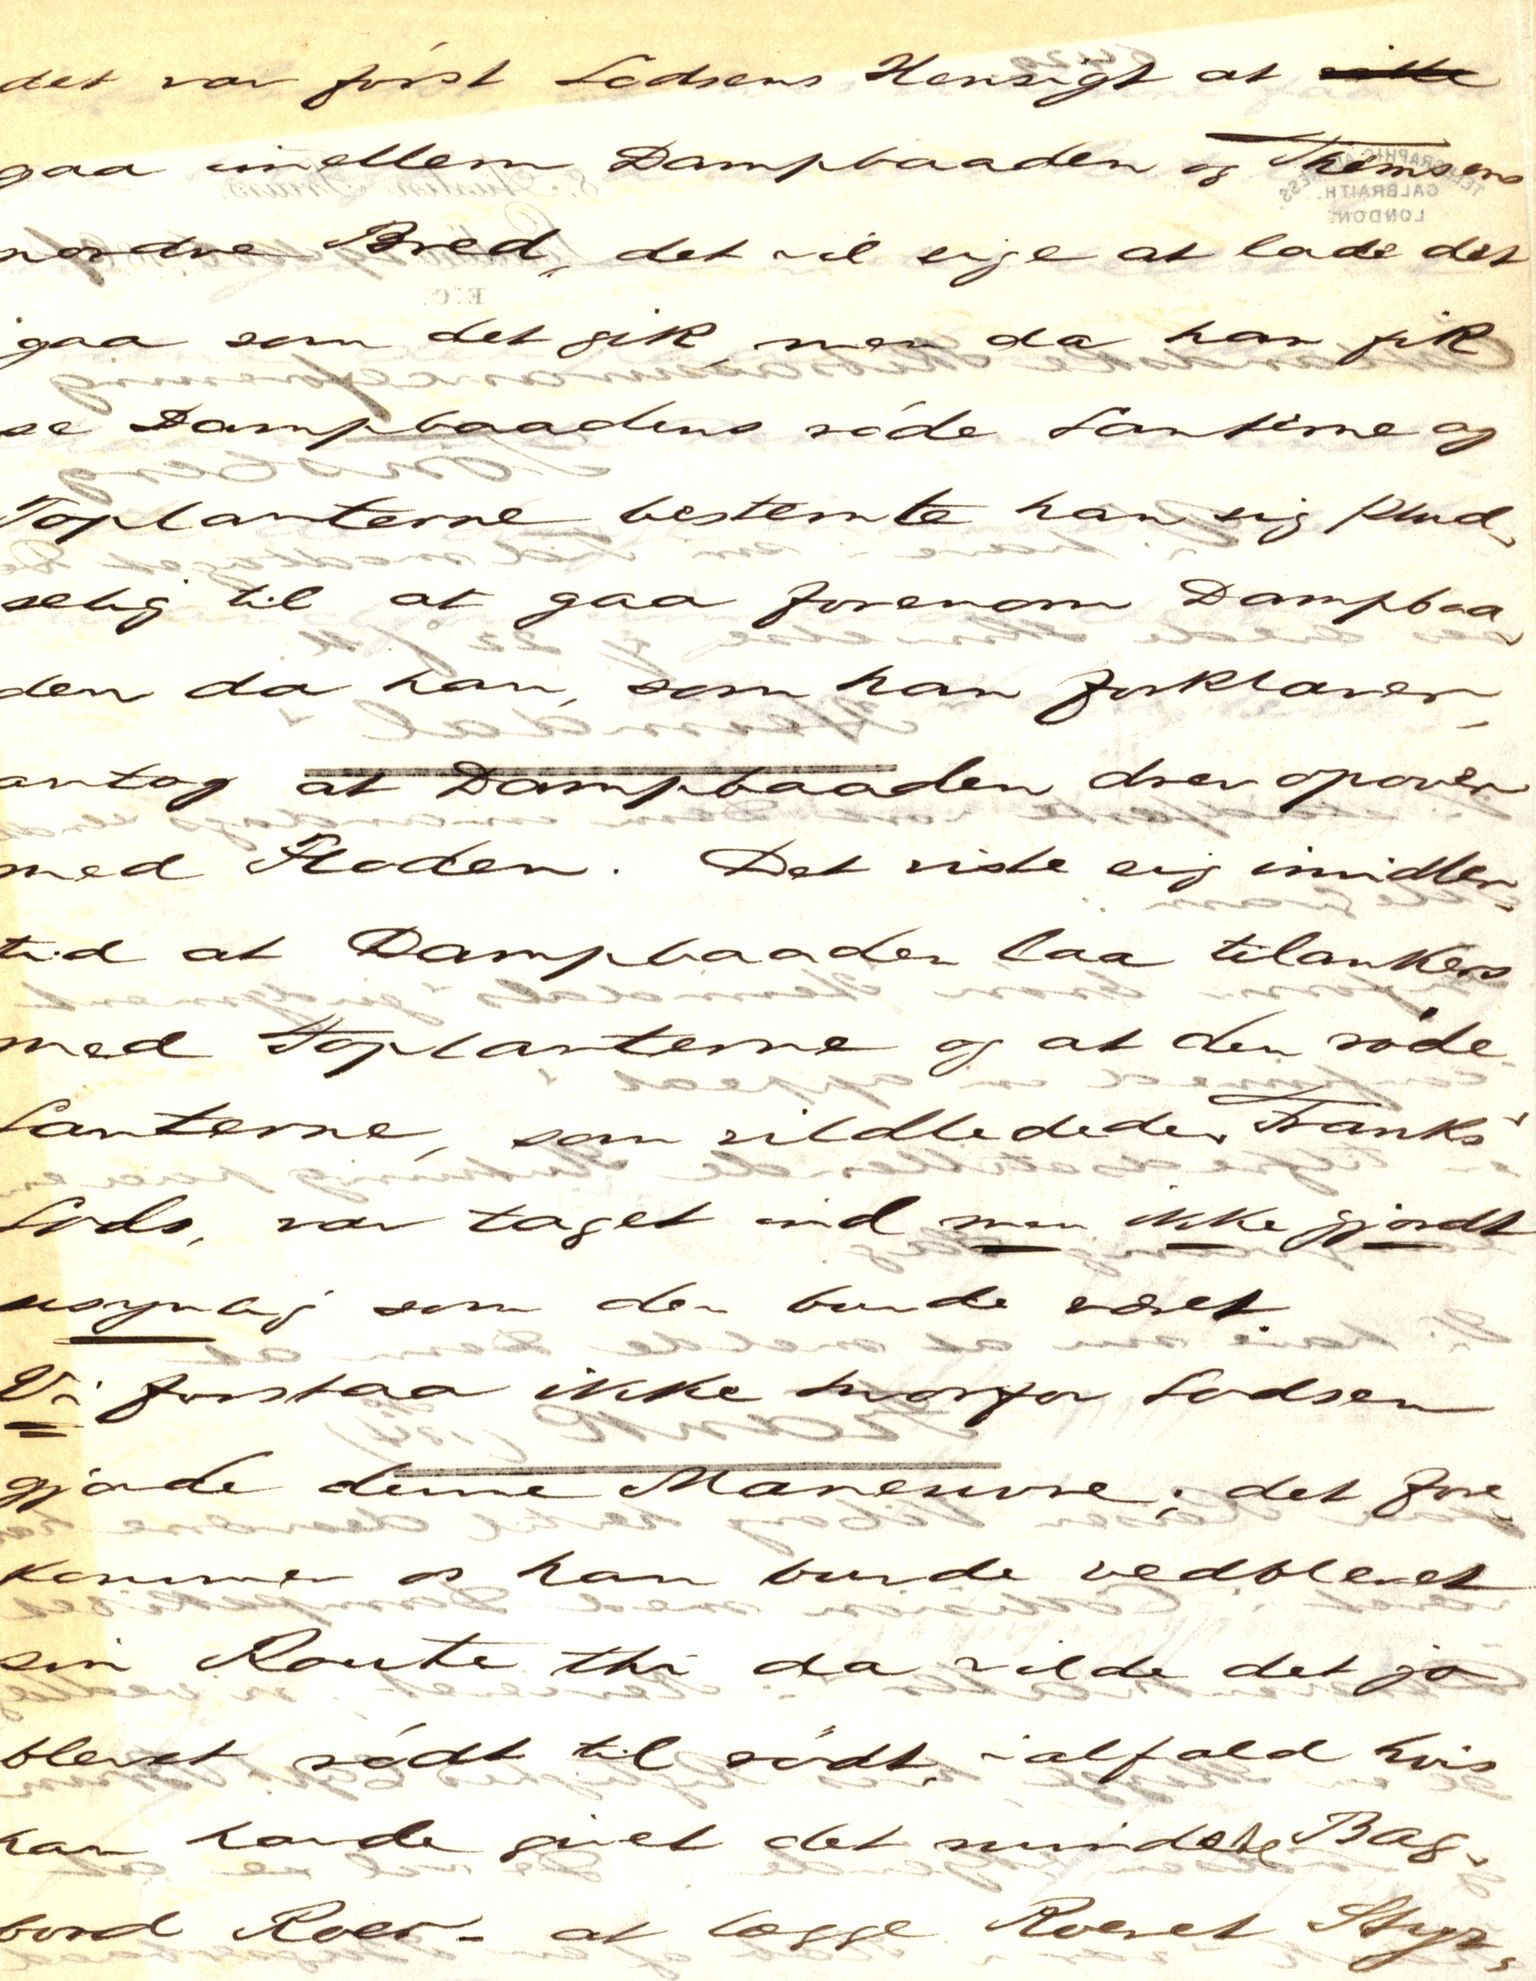 det var först Lodsens Hensigt at
gaa imellem Dampbaaden og Themsens
nordre Bred, det vil sige at lade det
gaa som det gik, men da han fik
se Dampbaadens röde Lanterne og
Toplanterne bestemte han sig Plud-
selig til at gaa forenom Dampbaa-
den da han, som han forklarer,
antog at Dampbaaden drev opover
med Floden. Det viste sig imidler-
tid at Dampbaaden laa tilankers
med Toplanterne og at den röde
Lanterne, som vildledede "Franks"
Lods, var taget ind men ikke gjordt
usynlig som den burde været.
Vi forstaa ikke hvorfor Lodsen
gjorde denne Maneuvre; det fore-
kommer os han burde vedblevet
sin Route thi da vilde det jo
blevet rödt til rödt, ialfald hvis
han havde givet det mindste Bag-
bord Roer - at lægge Roeret Styr-
TELEGRAPHIC ADDRESS.
GALBRAITH.
LONDON.
E.C.